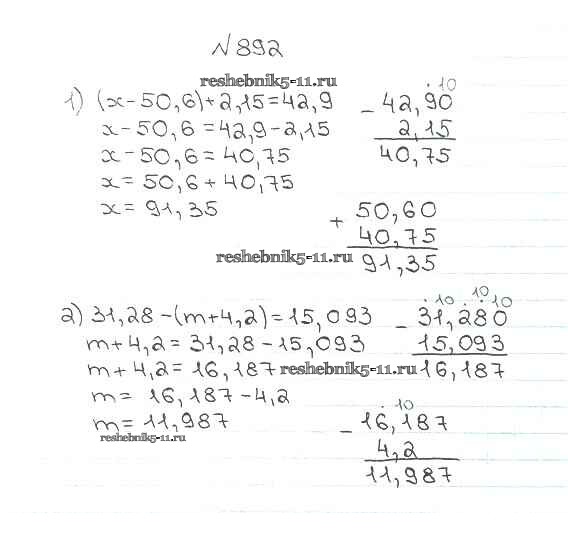 №892
reshebnik5-11.ru
1) (x-50,6)+2,15=42,9
x-50,6=42,9-2,15
x-50,6=40,75
x=50,6+40,75
x=91,35
. 10
- 42,90
2,15
40,75
+ 50,60
40,75
91,35
reshebnik5-11.ru
2) 31,28-(m+4,2)=15,093
m+4,2=31,28-15,093
m+4,2=16,187
m=16,187-4,2
m=11,987
reshebnik5-11.ru
reshebnik5-11.ru
. 10 . 10 . 10
- 31,280
15,093
16,187
. 10
- 16,187
4,2
11,987